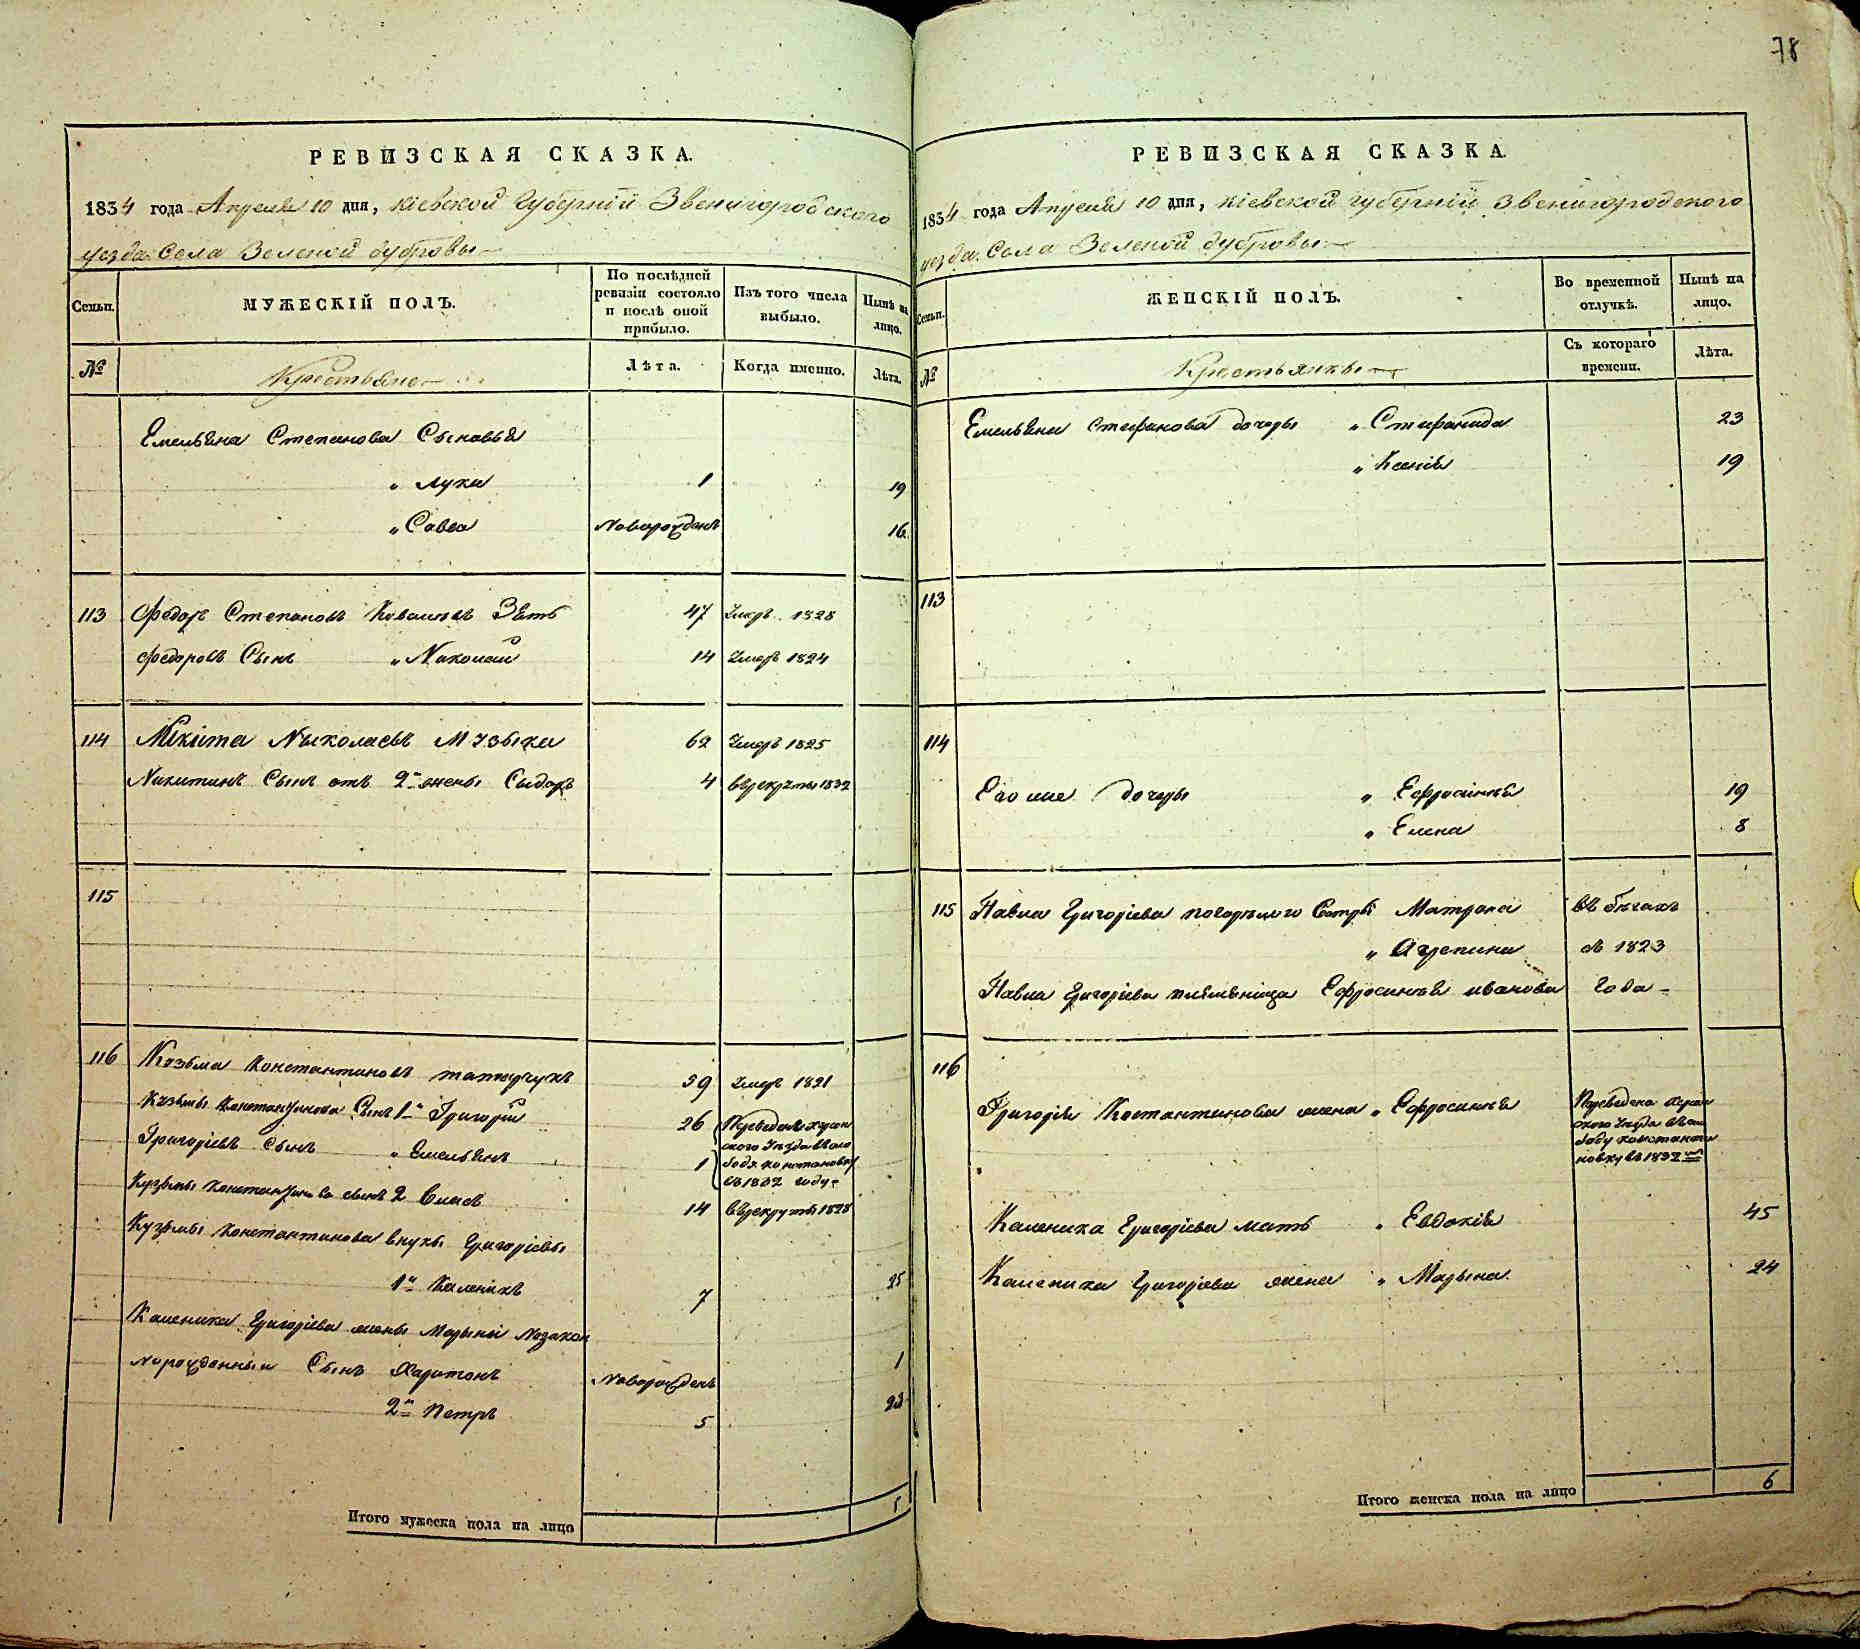 78
РЕВИЗСКАЯ СКАЗКА.
1834 года Апреля 10 дня, Кіевской Губерніи Звенигородского
уезда Села Зеленой дубровы
Семьи.
МУЖЕСКІЙ ПОЛЪ.
По послѣдней ревизіи состояло и послѣ оной прибыло.
Изъ того числа выбыло.
Нынѣ на лицо.
№
Крестьяне
Лѣта.
Когда именно.
Лѣта.
Емельяна Степанова Сыновья
„ Лука 1 19
„ Савва Новорожденъ 16
113 Федоръ Степановъ Зять 47 Умеръ 1828
Федоровъ Сынъ „ Николай 14 Умеръ 1824
114 Микита Николаевъ Музыка 62 Умеръ 1825
Никитинъ Сынъ отъ 2й жены Сыдоръ 4 в рекруты 1832
115
116 Козьма Константиновъ 59 Умеръ 1821
Козьмы Константинова Сынъ 1й Григорій 26 Переведенъ херсон
Григоріевъ Сынъ „ Емельянъ 1 ского Уезда въ сло
боду константиновку
въ 1832 году
Кузьмы Константинова сынъ 2 Власъ 14 в рекруты 1828
Кузьмы Константинова внуки Григоріевы
1й Каленикъ 7 25
Каленика Григоріева жены Марыны Незакон
норожденный Сынъ Харитонъ Новорожденъ 1
2й Петръ 5 23
Итого мужеска пола на лицо 5
РЕВИЗСКАЯ СКАЗКА.
1834 года Апреля 10 дня, Кіевской губерніи Звенигородского
уезда Села Зеленой дубровы
Семьи.
ЖЕНСКІЙ ПОЛЪ.
Во временной отлучкѣ.
Нынѣ на лицо.
№
Крестьянки
Съ котораго времени.
Лѣта.
Емельяна Стефанова дочеры „ Стефанида 23
„ Ксенія 19
113
114
Его же дочеры „ Ефросинія 19
„ Елена 8
115 Павла Григоріева Сестры Матрона въ бегахъ
„ Агрепина съ 1823
Павла Григоріева племѣнница Ефросинія иванова года
116
Григорія Костантинова жена „ Ефросинія Переведена херсон
ского Уезда въ сло
боду константи
новку въ 1832
Каленика Григоріева мать „ Евдокія 45
Каленика Григоріева жена „ Марына 24
Итого женска пола на лицо 6